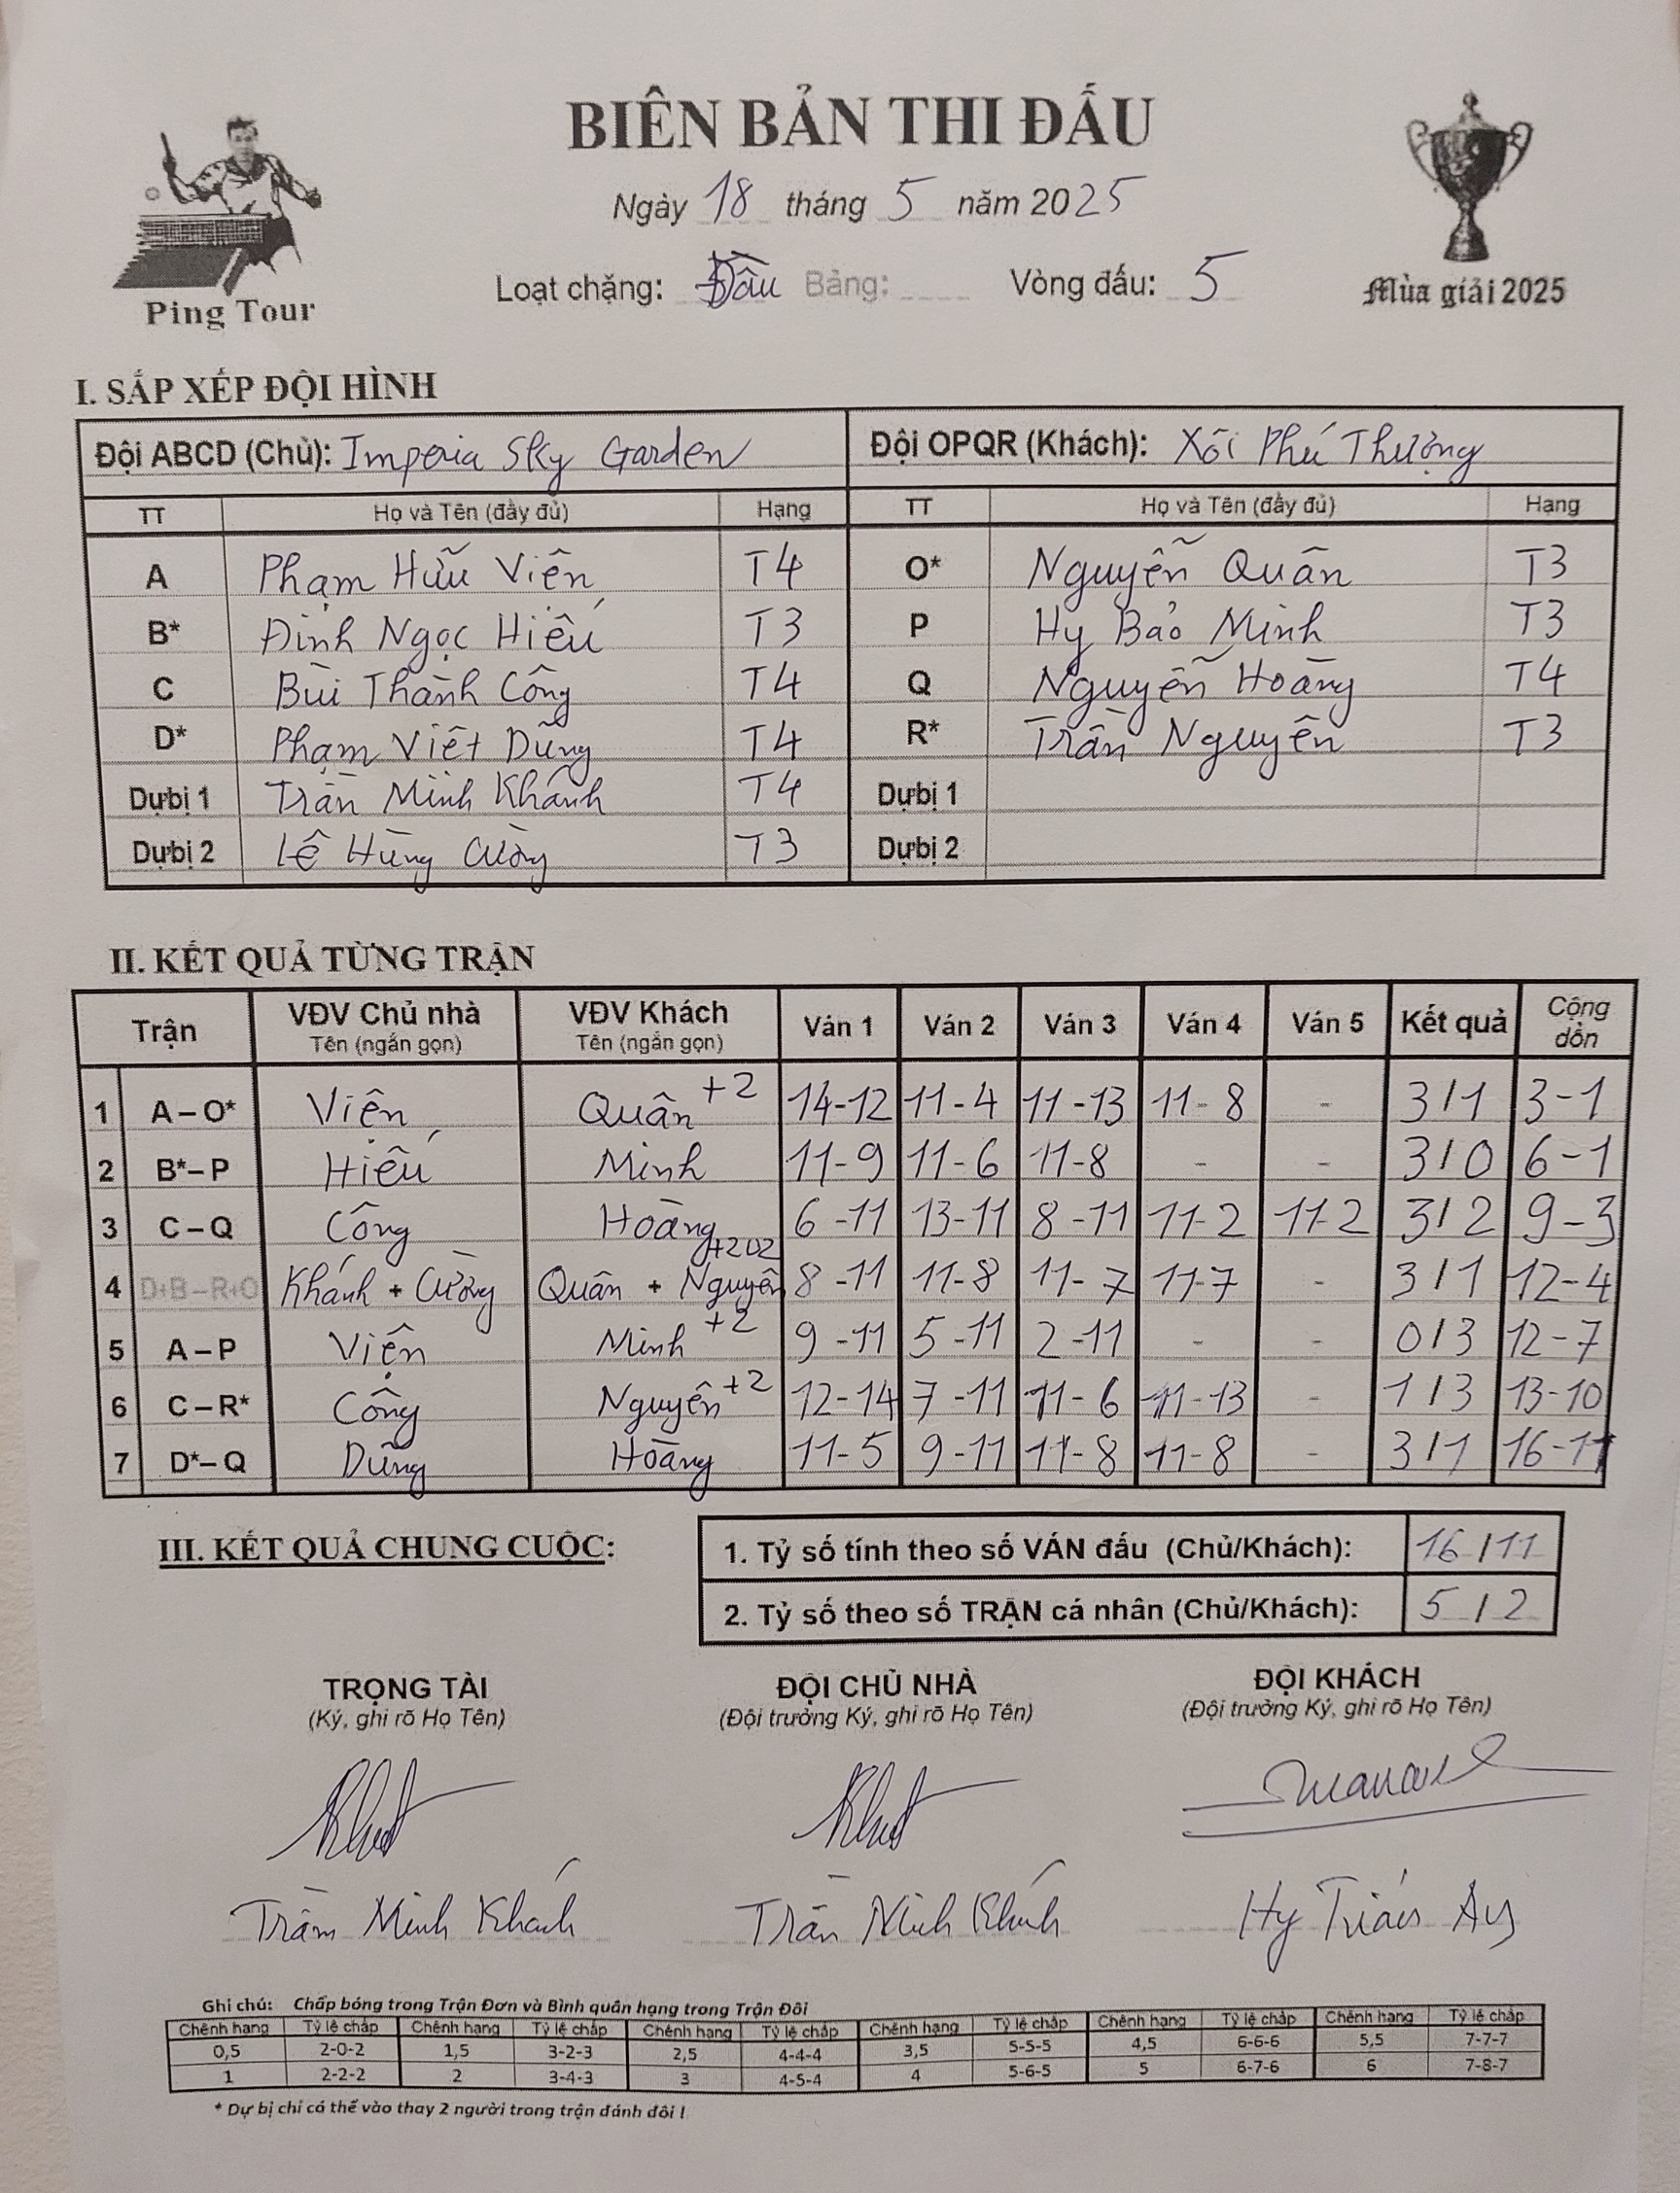 BIÊN BẢN THI ĐẤU
Ngày 18 tháng 5 năm 2025
Loạt chặng: Đầu Bảng: Vòng đấu: 5
Ping Tour
Mùa giải 2025
I. SẮP XẾP ĐỘI HÌNH
Đội ABCD (Chủ): Imperia Sky Garden Đội OPQR (Khách): Xôi Phú Thượng
TT Họ và Tên (đầy đủ) Hạng TT Họ và Tên (đầy đủ) Hạng
A Phạm Hữu Viện T4 O* Nguyễn Quân T3
B* Đinh Ngọc Hiếu T3 P Hy Bảo Minh T3
C Bùi Thành Công T4 Q Nguyễn Hoàng T4
D* Phạm Việt Dũng T4 R* Trần Nguyên T3
Dự bị 1 Trần Minh Khánh T4 Dự bị 1
Dự bị 2 Lê Hùng Cường T3 Dự bị 2
II. KẾT QUẢ TỪNG TRẬN
Trận VĐV Chủ nhà Tên (ngắn gọn) VĐV Khách Tên (ngắn gọn) Ván 1 Ván 2 Ván 3 Ván 4 Ván 5 Kết quả Cộng dồn
1 A – O* Viện Quân +2 14-12 11-4 11-13 11-8 - 3/1 3-1
2 B* – P Hiếu Minh 11-9 11-6 11-8 - - 3/0 6-1
3 C – Q Công Hoàng 6-11 13-11 8-11 11-2 11-2 3/2 9-3
4 D+B – R+O Khánh + Cường Quân + Nguyên +202 8-11 11-8 11-7 11-7 - 3/1 12-4
5 A – P Viện Minh +2 9-11 5-11 2-11 - - 0/3 12-7
6 C – R* Công Nguyên +2 12-14 7-11 11-6 11-13 - 1/3 13-10
7 D* – Q Dũng Hoàng 11-5 9-11 11-8 11-8 - 3/1 16-11
III. KẾT QUẢ CHUNG CUỘC:
1. Tỷ số tính theo số VÁN đấu (Chủ/Khách): 16/11
2. Tỷ số theo số TRẬN cá nhân (Chủ/Khách): 5/2
TRỌNG TÀI ĐỘI CHỦ NHÀ ĐỘI KHÁCH
(Ký, ghi rõ Họ Tên) (Đội trưởng Ký, ghi rõ Họ Tên) (Đội trưởng Ký, ghi rõ Họ Tên)
Trần Minh Khánh Trần Minh Khánh Hy
Ghi chú: Chấp bóng trong Trận Đơn và Bình quân hạng trong Trận Đôi
Chênh hạng Tỷ lệ chấp Chênh hạng Tỷ lệ chấp Chênh hạng Tỷ lệ chấp Chênh hạng Tỷ lệ chấp Chênh hạng Tỷ lệ chấp Chênh hạng Tỷ lệ chấp
0,5 2-0-2 1,5 3-2-3 2,5 4-4-4 3,5 5-5-5 4,5 6-6-6 5,5 7-7-7
1 2-2-2 2 3-4-3 3 4-5-4 4 5-6-5 5 6-7-6 6 7-8-7
* Dự bị chỉ có thể vào thay 2 người trong trận đánh đôi !